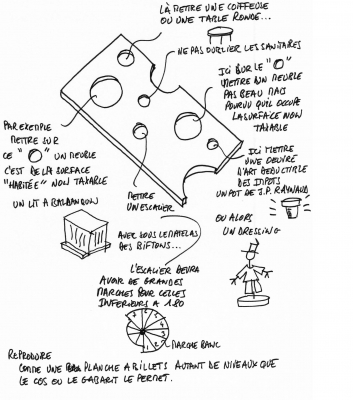 LÀ METTRE UNE COIFFEUSE
OU UNE TABLE RONDE...
NE PAS OUBLIER LES SANITAIRES
ICI SUR LE "O"
METTRE UN MEUBLE
PAS BEAU MAIS
POURVU QU'IL OCCUPE
LA SURFACE NON
TAXABLE
PAR EXEMPLE
METTRE SUR
CE "O" UN MEUBLE
C'EST DE LA SURFACE
"HABITÉE" NON TAXABLE
UN LIT À BALDAQUIN
METTRE
UN ESCALIER
ICI METTRE
UNE OEUVRE
D'ART DEDUCTIBLE
DES IMPOTS
UN POT DE J.P. RAYNAUD
AVEC SOUS LE MATELAS
DES BIFTONS...
OU ALORS
UN DRESSING
L'ESCALIER DEVRA
AVOIR DE GRANDES
MARCHES POUR CELLES
INFERIEURS A 1.80
1
2
3
4
5
6
7
8
MARCHE BANC
REPRODUIRE
COMME UNE PLANCHE A BILLETS AUTANT DE NIVEAUX QUE
LE COS OU LE GABARIT LE PERMET.